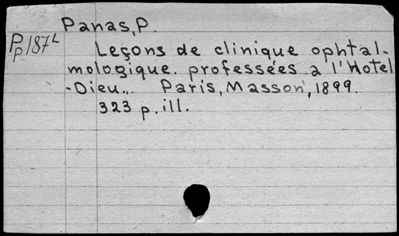 Panas, P.
Pp187L
Leçons de clinique ophtal-
mologique. professées a l'Hotel
-Dieu... Paris, Masson, 1899.
323 p. ill.